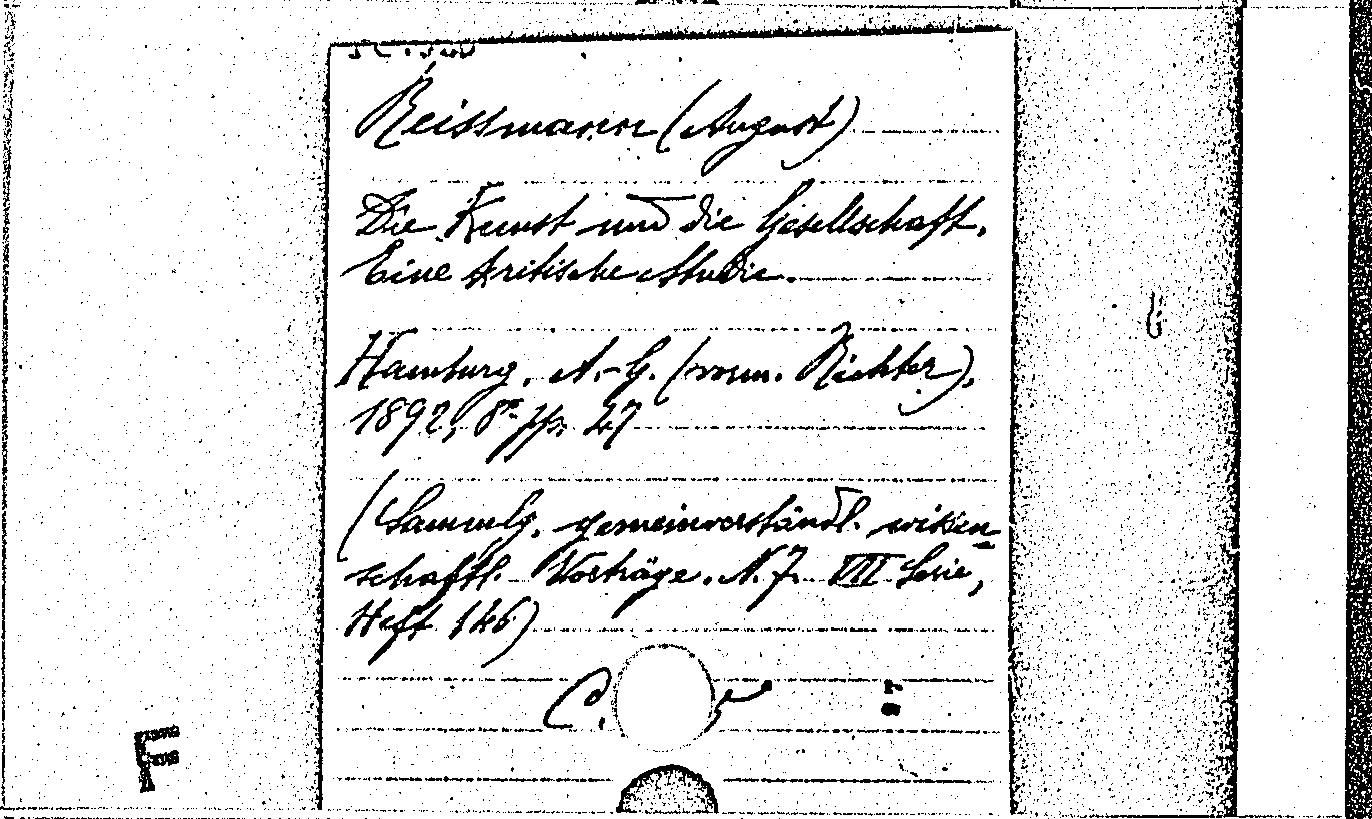 Reissmann (August)
Die Kunst und die Gesellschaft.
Eine kritische Studie.
Hamburg, A.-G. (vorm. Richter),
1892, 8º pp. 47
(Sammlg. gemeinverständl. wissen-
schaftl. Vorträge. N.F. VII Serie,
Heft 146)
C.
F